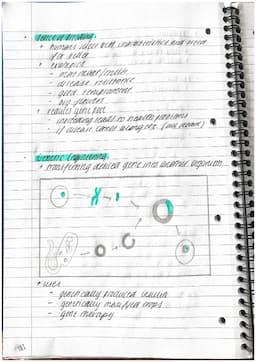 Selective Breeding
• humans select best characteristics and breed
for these
• examples
- more meat / milk
- disease resistance
- good temperament
- big flowers
• reduces gene pool
- inbreeding leads to health problems
- if disease comes along
Genetic Engineering
• transferring desired gene into another organism
• uses
- genetically produced insulin
- genetically modified crops
- gene therapy